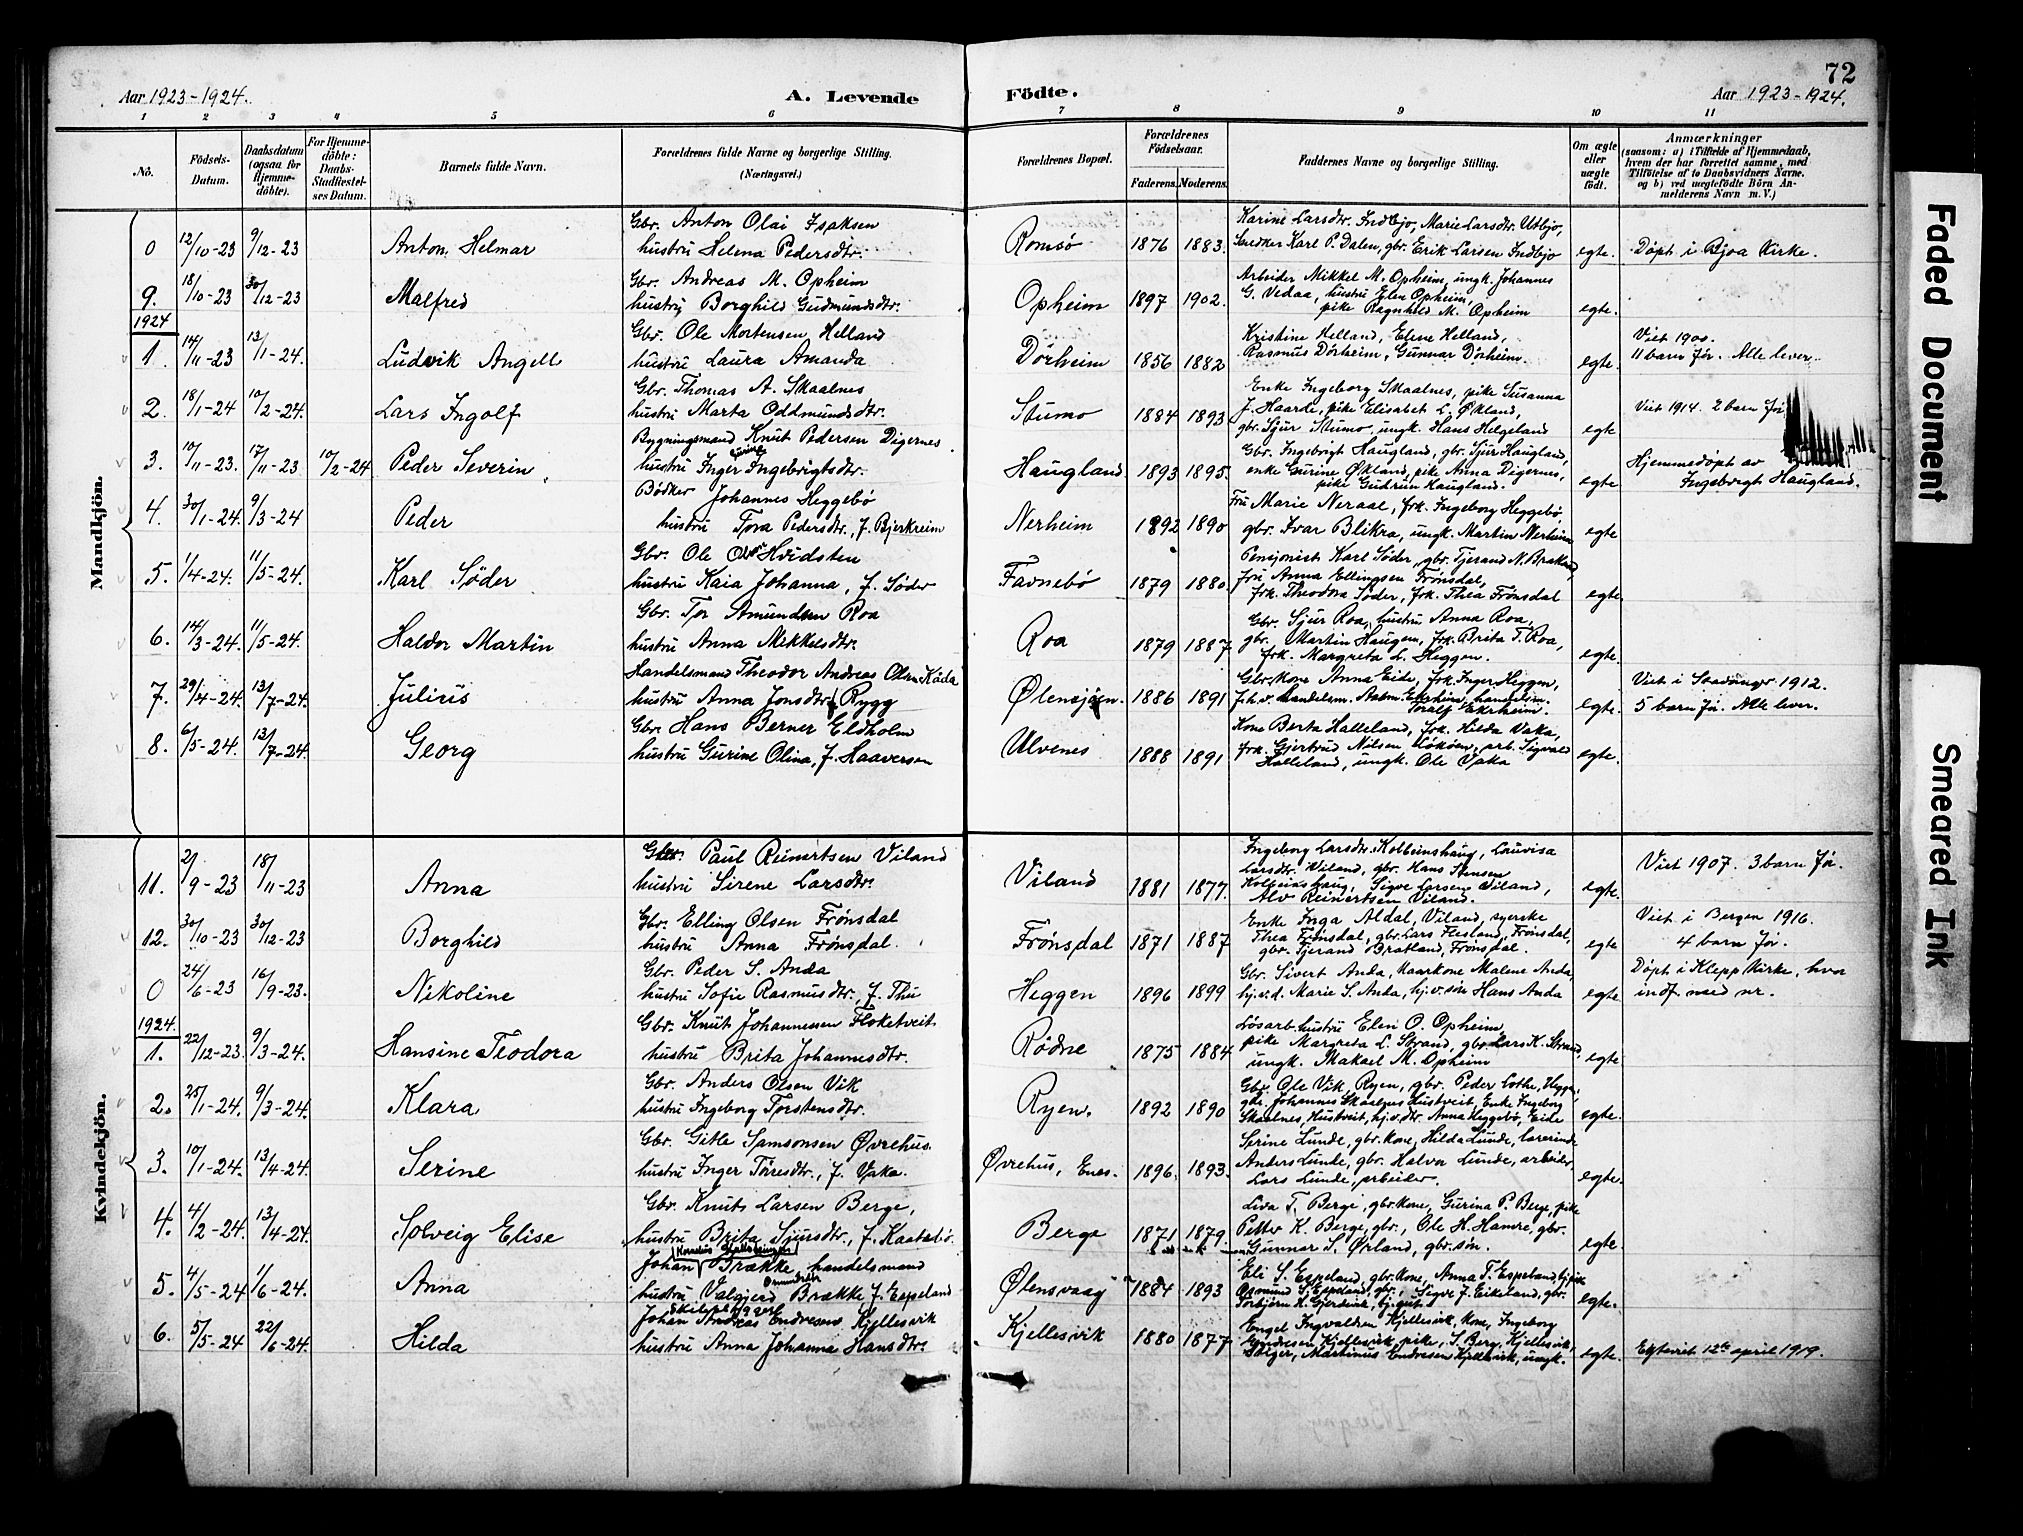 72
Aar 1923-1924. A. Levende Födte. Aar 1923-1924.
1 2 3 4 5 6 7 8 9 10 11
No. Födsels-Datum. Daabsdatum (ogsaa for Hjemmedöbte). For Hjemmedöbte: Daabs-Stadfæstelses Datum. Barnets fulde Navn. Forældrenes fulde Navne og borgerlige Stilling. (Næringsvei.) Forældrenes Bopæl. Forældrenes Födselsaar. Faderens. Moderens. Faddernes Navne og borgerlige Stilling. Om ægte eller uægte födt. Anmærkninger (saasom: a) i Tilfælde af Hjemmedaab, hvem der har forrettet samme, med Tilföielse af to Daabsvidners Navne, og b) ved uægtefödte Börn Anmelderens Navn m. V.)
Mandkjön.
Gbr. Anton Olai Isaksen Karine Larsdtr. Indbjo, Marie Larsdtr. Utbjo,
0 12/10-23 9/12-23 Anton Helmar hustru Helena Pedersdtr. Romsö 1876 1883. Snedker Karl P. Dalen, gbr. Erik Larsen Indbjo egte. Döpt i Bjoa Kirke.
Gbr. Andreas M. Opheim Arbeider Mikkel M. Opheim, ungk. Johannes
9. 18/10-23 30/12-23 Malfred hustru Borghild Gudmundsdtr. Opheim 1897 1902. G. Vedaa, hustru Elen Opheim, pike Ragnhild M. Opheim egte.
1924
Gbr. Ole Mortensen Helland Kristine Helland, Elene Helland, Viet 1900.
1. 14/11-23 13/1-24. Ludvik Angell hustru Laura Amanda Dörheim 1856 1882 Rasmus Dörheim, Gunnar Dörheim. egte. 11 barn för. Alle lever.
Gbr. Thomas A. Skaalnes Enke Ingeborg Skaalnes, pike Susanna
2. 18/1-24 10/2-24. Lars Ingolf hustru Marta Oddmundsdtr. Stumo 1884 1893 J. Haarde, pike Elisabet L. Økland, gbr. Sjur Stumo, ungk. Hans Helgeland egte Viet 1914. 2 barn för
Bygningsmand Knut Pedersen Digernes Gbr. Ingebrigt Haugland, gbr. Sjur Haugland,
3. 10/11-23. 17/11-23 10/2-24 Peder Severin hustru Inger Gurine Ingebrigtsdtr. Haugland 1893 1895. enke Gurine Økland, pike Anna Digernes, pike Gudrun Haugland. egte Hjemmedöpt av Ingebrigt Haugland.
Bödker Johannes Heggebö Fru Marie Neraal, frk. Ingeborg Heggebö
4. 30/1-24. 9/3-24 Peder hustru Tora Pedersdtr., f. Bjerkreim Nerheim 1892 1890 gbr. Ivar Blikra, ungk. Martin Nerheim egte
Gbr. Ole Hvidsten Pensjonist Karl Söder, gbr. Tjerand N. Bratland,
5. 1/4-24. 11/5-24. Karl Söder hustru Kaia Johanna, f. Söder Favnebö 1879 1880. fru Anna Ellingsen Frönsdal, frk. Theodora Söder, frk. Thea Frönsdal egte.
Gbr. Tor Amundsen Roa Gbr. Sjur Roa, hustru Anna Roa,
6. 14/3-24. 11/5-24. Haldor Martin hustru Anna Mikkelsdtr. Roa 1879 1887 gbr. Martin Haugen, frk. Brita T. Roa, frk. Margreta L. Heggen. egte.
Handelsmand Theodor Andreas Olsen Kåda Gbr. kone Anna Eide, frk. Inger Heggen, Viet i Stavanger 1912.
7. 29/4-24. 13/7-24. Julius hustru Anna Jonsdtr. f. Rygg Ølensjöen. 1886 1891 egte. 5 barn för. Alle lever.
Gbr. Hans Berner Eldholm Kone Berta Halleland, frk. Hilda Vaka,
8. 6/5-24. 13/7-24. Georg hustru Gurine Olina, f. Haaversen Ulvenes 1888 1891 frk. Gjertrud Nilsen Lököen, arb. Sigvald Halleland, ungk. Ole Vaka egte.
Kvindekjön.
Gbr. Paul Reinertsen Viland Ingeborg Larsdtr. Kolbeinshaug, Lovisa
11. 2/9-23 18/11-23 Anna hustru Sirene Larsdtr. Viland 1881 1877. Larsdtr. Viland, gbr. Hans Hansen Kolbeinshaug, Sigve Larsen Viland, Alv Reinertsen Viland. egte. Viet 1907. 3 barn för.
Gbr. Elling Olsen Frönsdal Enke Inga Aldal, Viland, syerske Viet i Bergen 1916.
12. 30/10-23 30/12-23 Borghild hustru Anna Frönsdal. Frönsdal 1871 1887 Thea Frönsdal, gbr. Lars Flesland, Frönsdal, gbr. Tjerand Bratland, Frönsdal. egte 4 barn för.
Gbr. Peder S. Anda Gbr. Sivert Anda, Kaarkone Malene Anda, Döpt i Klepp Kirke, hvor
0 24/6-23 16/9-23. Nikoline hustru Sofie Rasmusdtr., f. Thu Heggen 1896 1899 hj.v.d. Marie S. Anda, hj.v. sön Hans Anda egte indf. med nr.
1924.
Gbr. Knut Johannessen Floketveit Lösarb. hustru Elen O. Opheim,
1. 22/12-23. 9/3-24. Hansine Teodora hustru Brita Johannesdtr. Rödne 1875 1884 pike Margreta L. Strand, gbr. Lars K. Strand, ungk. Makael M. Opheim egte
Gbr. Anders Olsen Vik Gbr. Ole Vik, Ryen, gbr. Peder Lothe, Heggen,
2. 25/1-24. 9/3-24. Klara hustru Ingeborg Torstensdtr. Ryen. 1892 1890 gbr. Johannes Skaalnes Hustveit, Enke Ingeborg Skaalnes, Hustveit, hj.v.dtr. Anna Heggebö, Eide egte.
Gbr. Gitle Samsonsen Øvrehus. Serine Lunde, gbr. kone, Hilda Lunde, lærerinde
3. 10/1-24. 13/4-24. Serine hustru Inger Töresdtr., f. Vaka. Øvrehus, Enes. 1896. 1893. Anders Lunde, gbr. Halvor Lunde, arbeider, Lars Lunde, arbeider. egte.
Gbr. Knut Larsen Berge, Liva T. Berge, gbr. kone, Gurina P. Berge, pike
4. 4/2-24. 13/4-24. Solveig Elise hustru Brita Sjursdtr., f. Kaatabö. Berge 1871 1879. Petter K. Berge, gbr., Ole H. Hamre, gbr. Gunnar S. Ørland, gbr. sön. egte.
Johan Brække, handelsmand Eli S. Espeland, gbr. kone, Anna T. Espeland, hj. pike
5. 4/5-24. 1/6-24. Anna hustru Valgjerd Osmundsdtr. Brække f. Espeland Ølensvaag 1884 1893 Osmund S. Espeland, gbr., Sigve J. Eikeland, gbr. Torbjörn K. Gjerdevik, hj. gut. egte.
Skibsbygger Johan Andreas Endresen Kjellesvik Engel Ingvaldsen Kjellesvik, kone, Ingeborg
6. 5/5-24 22/6-24. Hilda hustru Anna Johanna Hansdtr. Kjellesvik 1880 1877 Endresen Kjellesvik, pike, S. Berg, Kjellesvik, Martinus Endresen Kjellesvik, ungk. egte. Egteviet 12te april 1919.
Faded Document
Smeared Ink